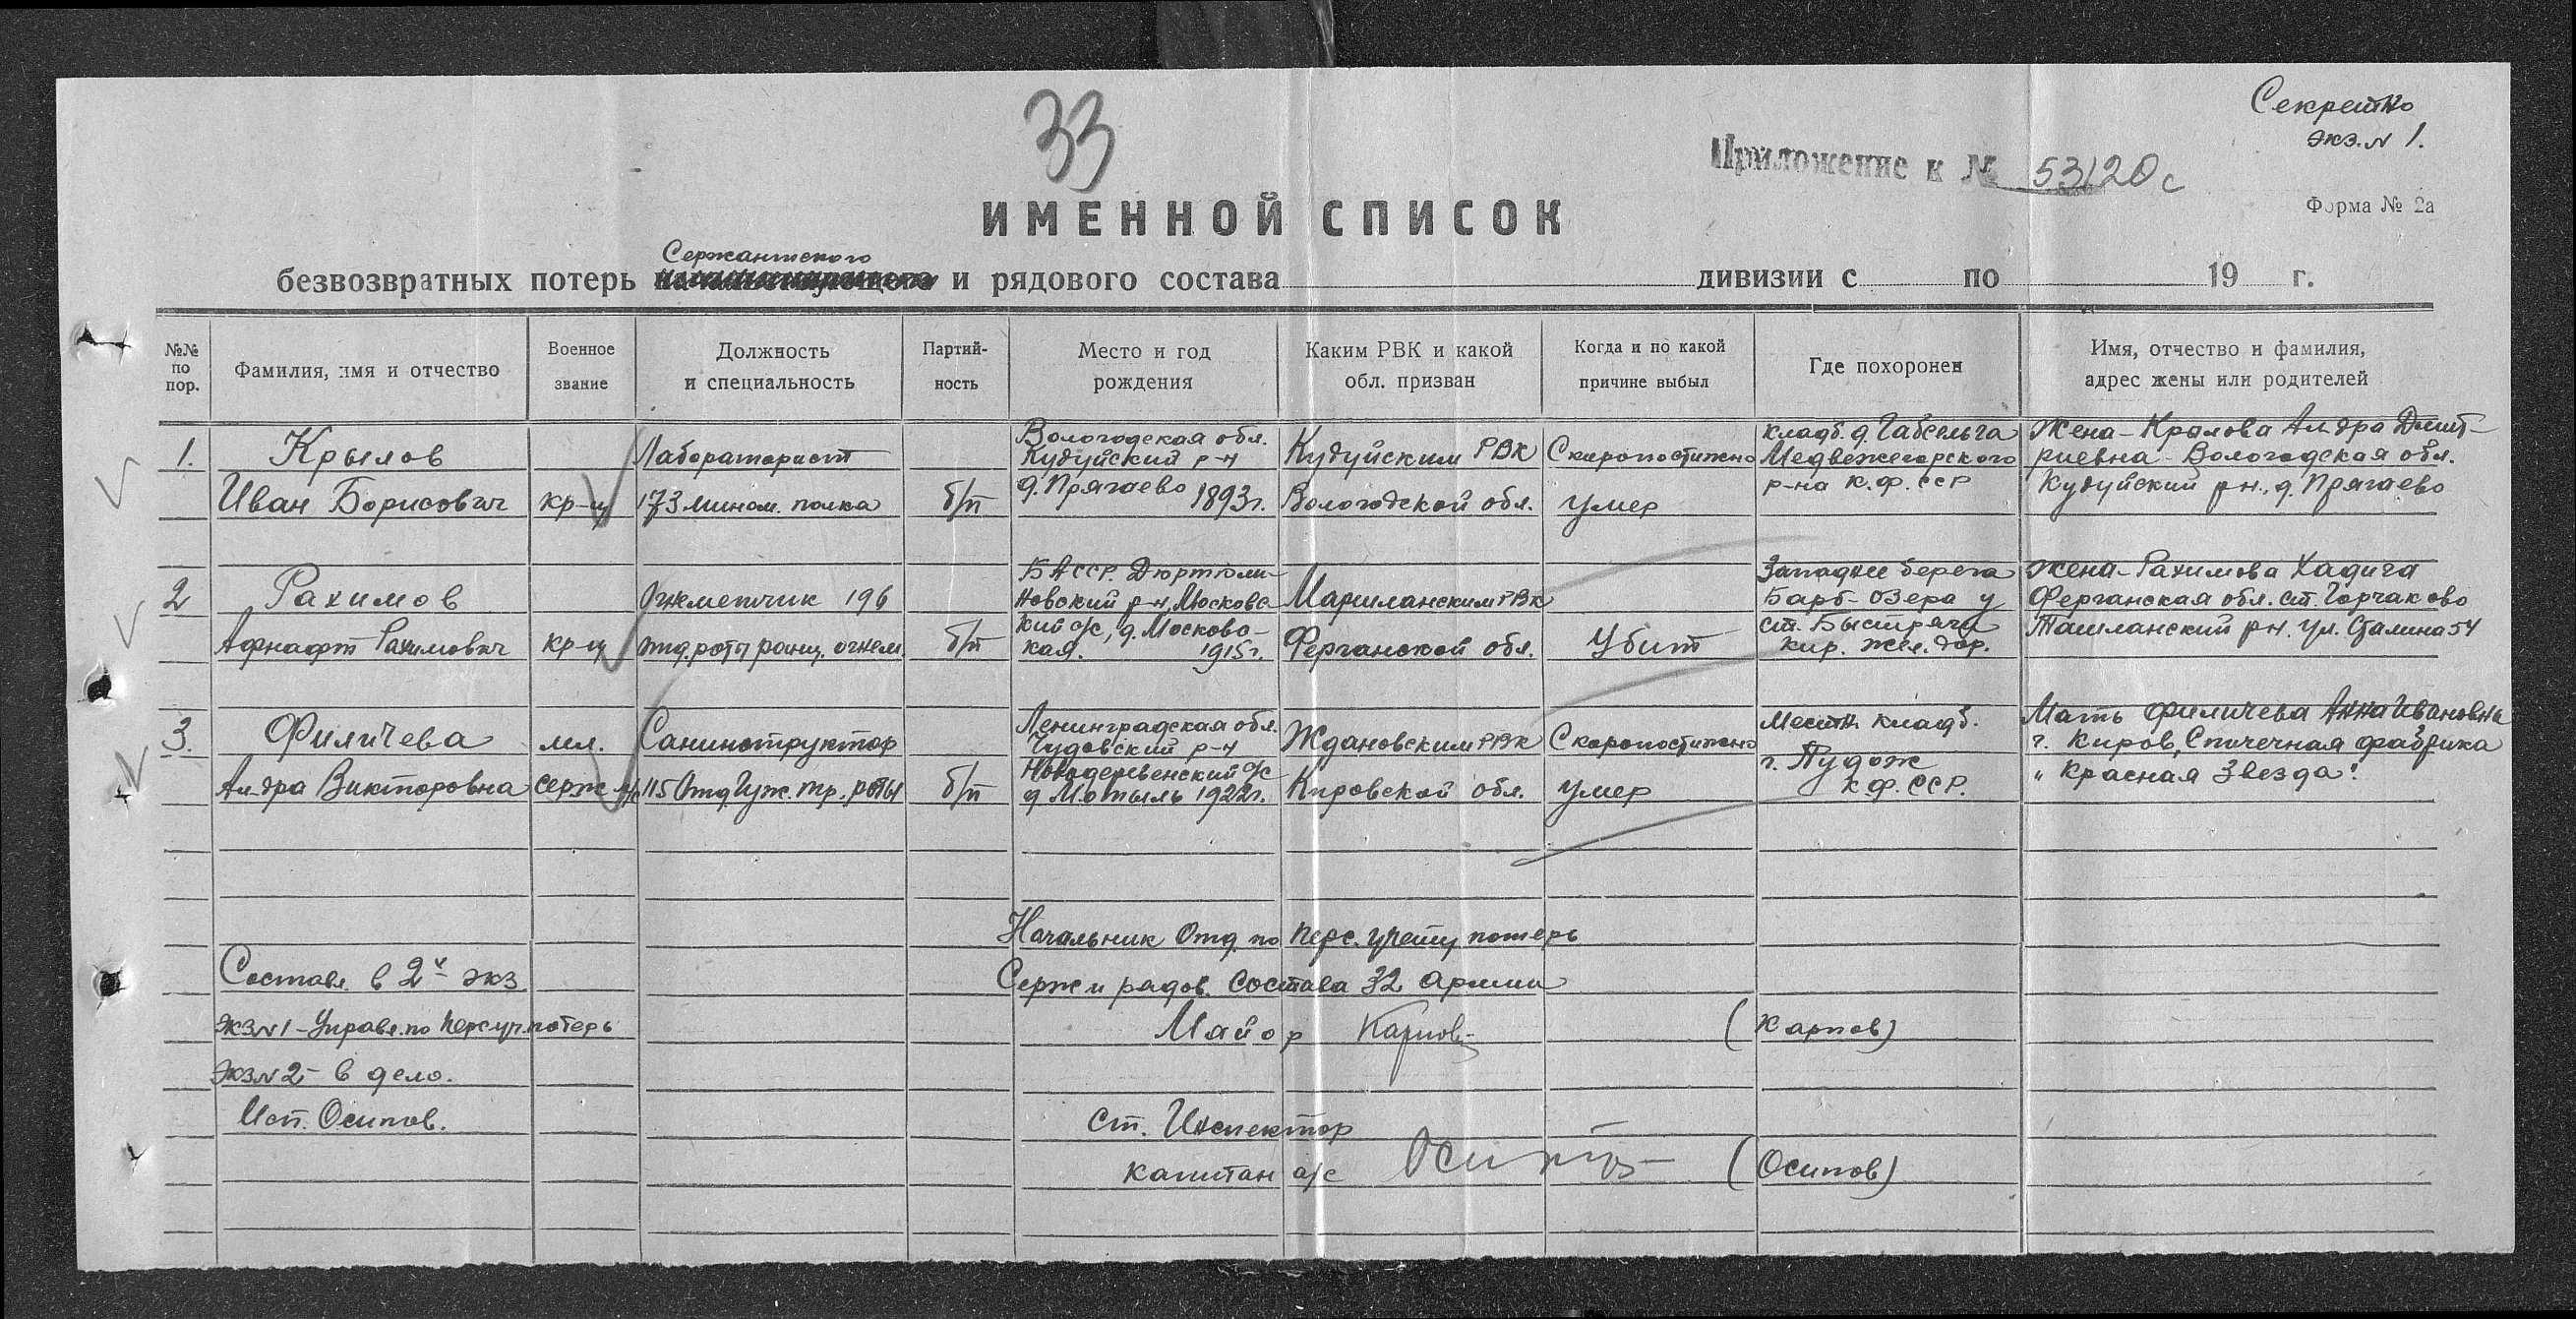 Секретно
экз. № 1.
33
Приложение к № 53120с
Форма № 2а
ИМЕННОЙ СПИСОК
Сержантского
безвозвратных потерь и рядового состава дивизии с по 19 г.
№№ по пор.
Фамилия, имя и отчество
Военное звание
Должность и специальность
Партий-ность
Место и год рождения
Каким РВК и какой обл. призван
Когда и по какой причине выбыл
Где похоронен
Имя, отчество и фамилия, адрес жены или родителей
1.
Крылов
Иван Борисович
кр-ц
Лабораторист
173 мином. полка
б/п
Вологодская обл.
Кудуйский р-н
д. Прягаево 1893г.
Кудуйским РВК
Вологодской обл.
Скоропостижно
умер
кладб. д. Габсельга
Медвежегорского
р-на К.Ф.ССР
Жена - Крылова Ал-дра Дмит-
риевна - Вологодская обл.
Кудуйский р-н., д. Прягаево
2
Рахимов
Афнафт Рахимович
кр-ц
Огнметчик 196
отд. роты ранц. огнем.
б/п
БАССР. Дюртюли-
новский р-н, Московс
кий с/с, д. Московс-
кая. 1915г.
Маргиланским РВК
Ферганской обл.
Убит
Западнее берега
Барб-озера у
ст. Быстряги
Кир. жел. дор.
Жена - Рахимова Хадича
Ферганская обл. ст. Горчаково
Ташланский р-н. ул. Сталина 54
3.
Филичева
Ал-дра Викторовна
мл.
серж. м/с
Санинструктор
115 Отд. Гуж. тр. роты
б/п
Ленинградская обл.
Чудовский р-н
Новодеревенский с/с
д. Мотыль 1922г.
Ждановским РВК
Кировской обл.
Скоропостижно
умер
Местн. кладб.
г. Пудож
К.Ф.ССР.
Мать Филичева Анна Ивановна
г. Киров, Спичечная фабрика
"Красная Звезда".
Начальник Отд. по перс. учету потерь
Серж и рядов. состава 32 армии
Майор Карпов (Карпов)
Составл. в 2х экз
Экз № 1 - Управл. по перс уч. потерь
Экз № 2 - в дело.
Исп. Осипов.
Ст. Инспектор
капитан а/с Осипов (Осипов)